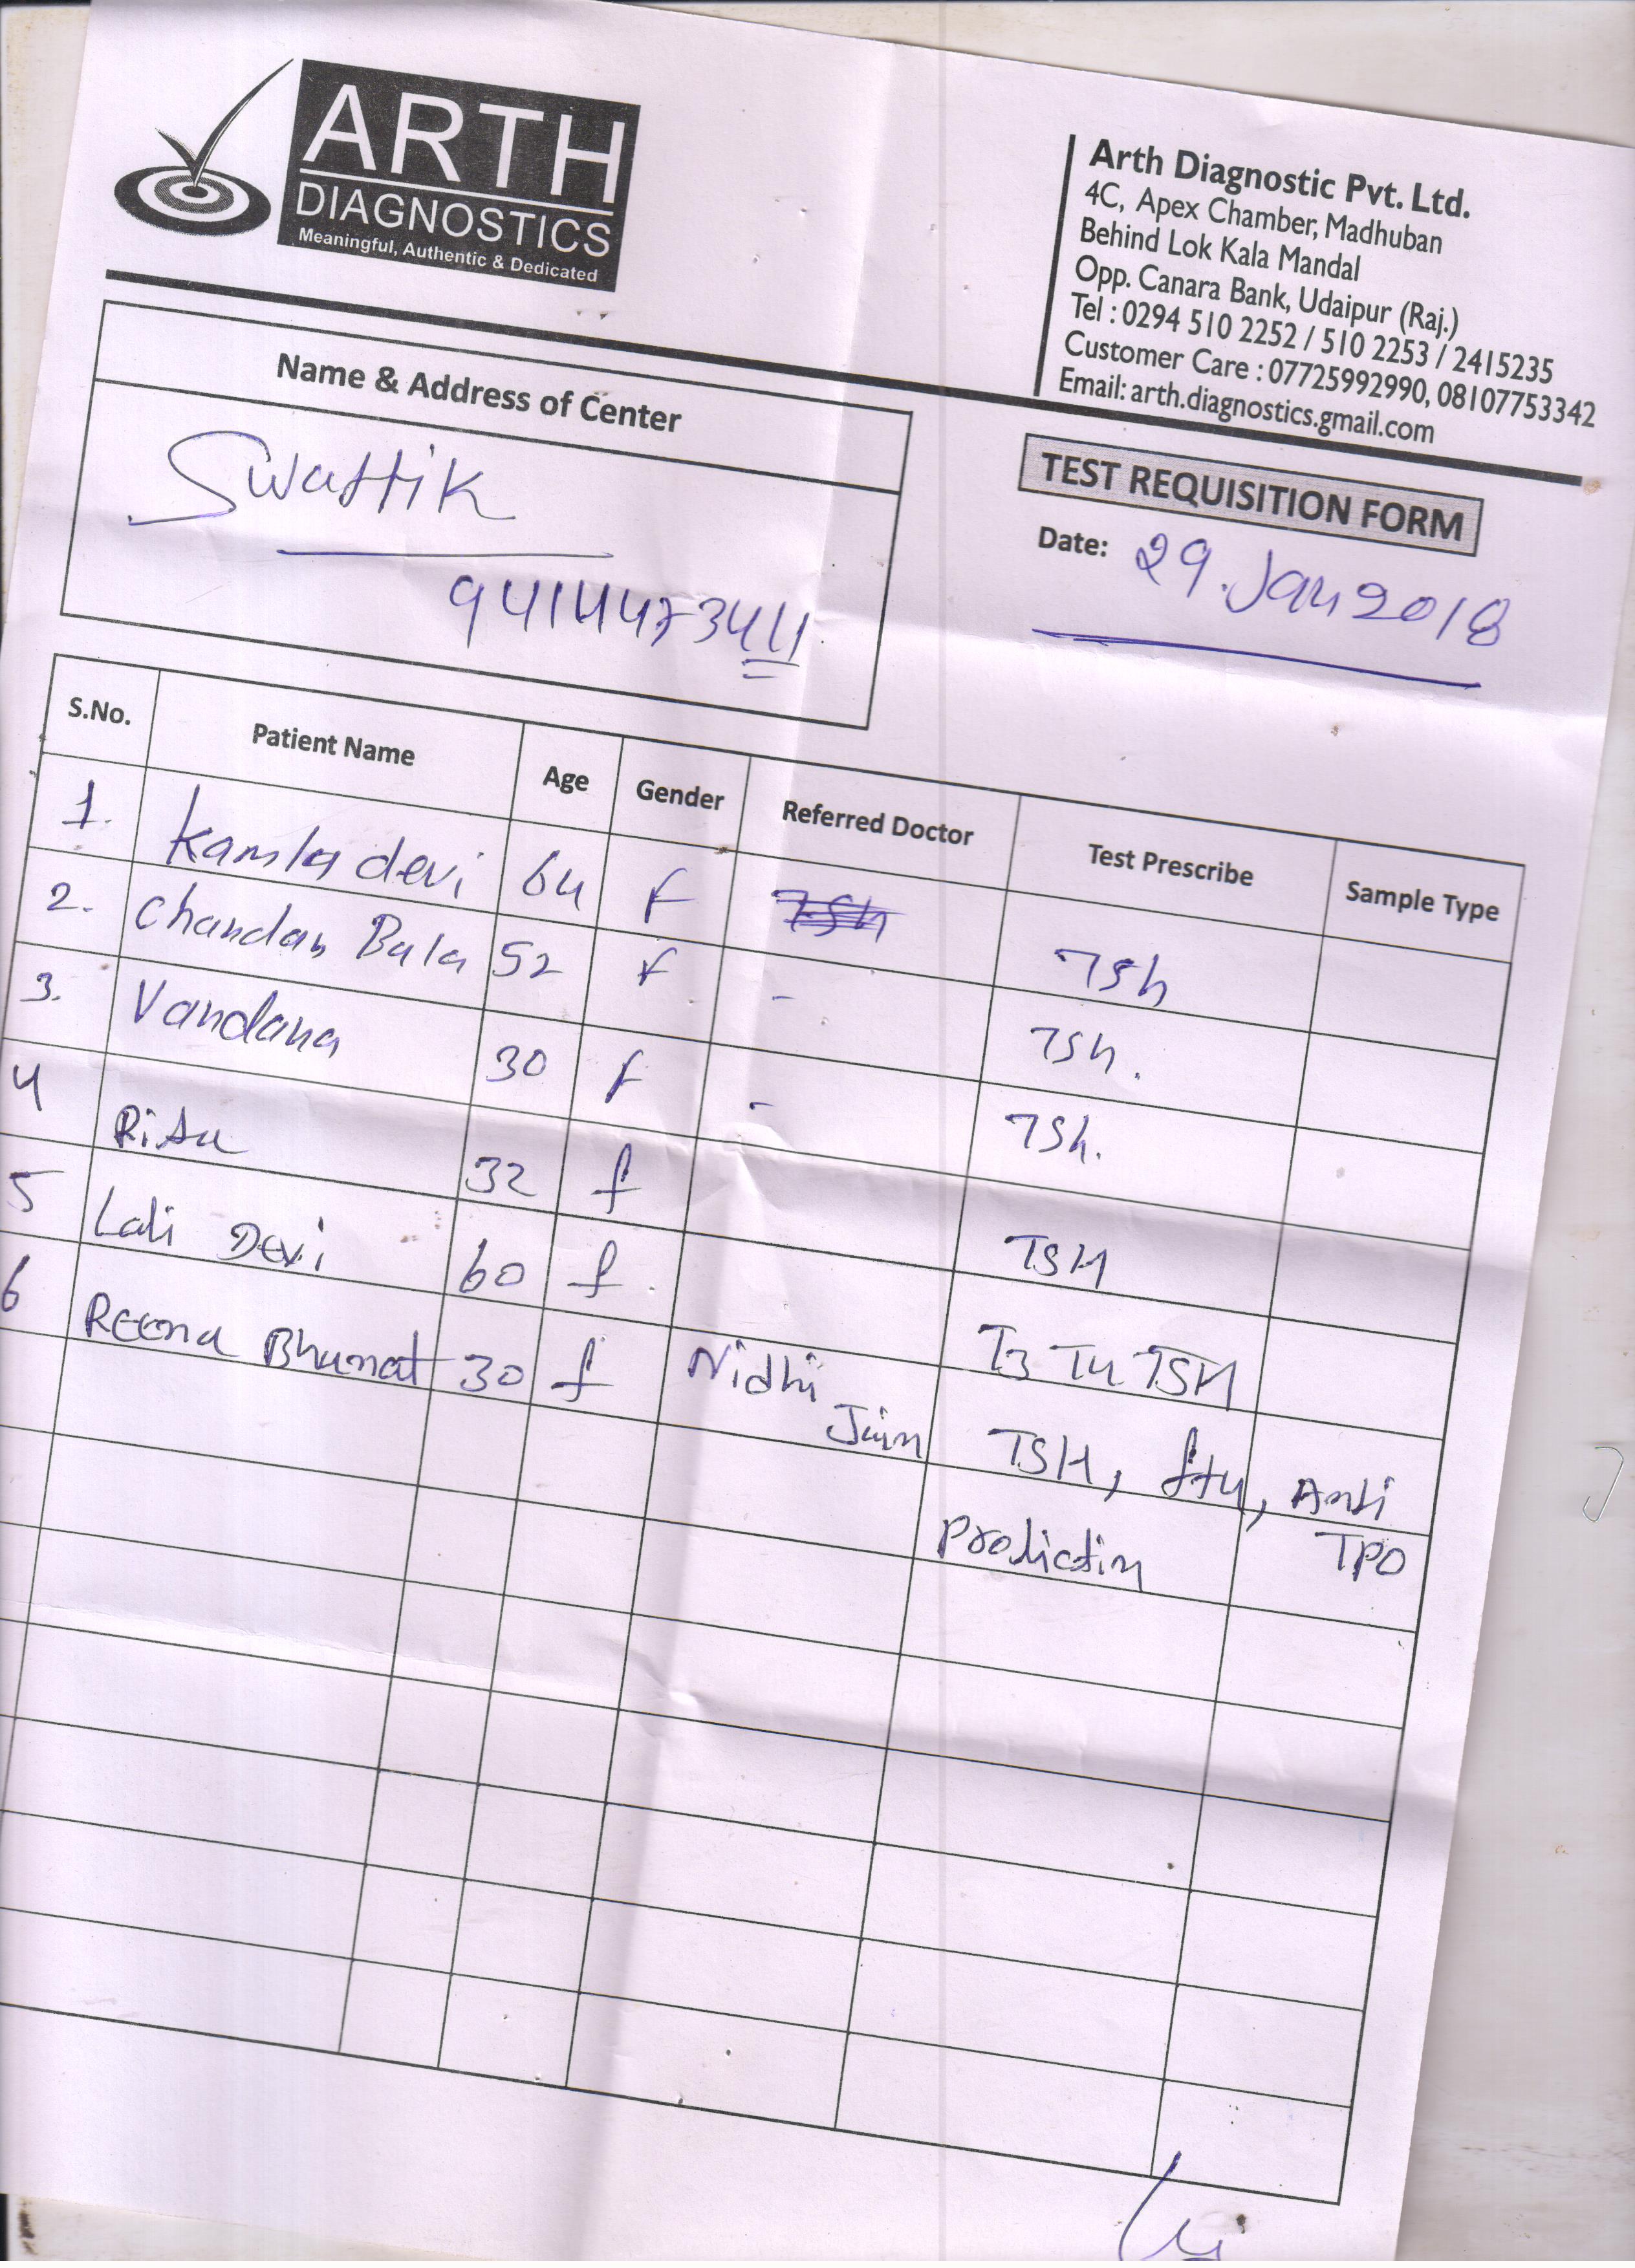 ARTH
DIAGNOSTICS
Meaningful, Authentic & Dedicated
Arth Diagnostic Pvt. Ltd.
4C, Apex Chamber, Madhuban
Behind Lok Kala Mandal
Opp. Canara Bank, Udaipur (Raj.)
Tel : 0294 510 2252 / 510 2253 / 2415235
Customer Care : 07725992990, 08107753342
Email: arth.diagnostics.gmail.com
Name & Address of Center
Swastik
9414473411
TEST REQUISITION FORM
Date: 29. Jan 2018
S.No. Patient Name Age Gender Referred Doctor Test Prescribe Sample Type
1. Kamla devi 64 F TSh TSh
2. Chandan Bala 52 F - TSh.
3. Vandana 30 F - TSh.
4 Ritu 32 f TSH
5 Lali Devi 60 f T3 T4 TSH
6 Reena Bhumat 30 f Nidhi Jain TSH, ft4, Anti TPO
Prolictin